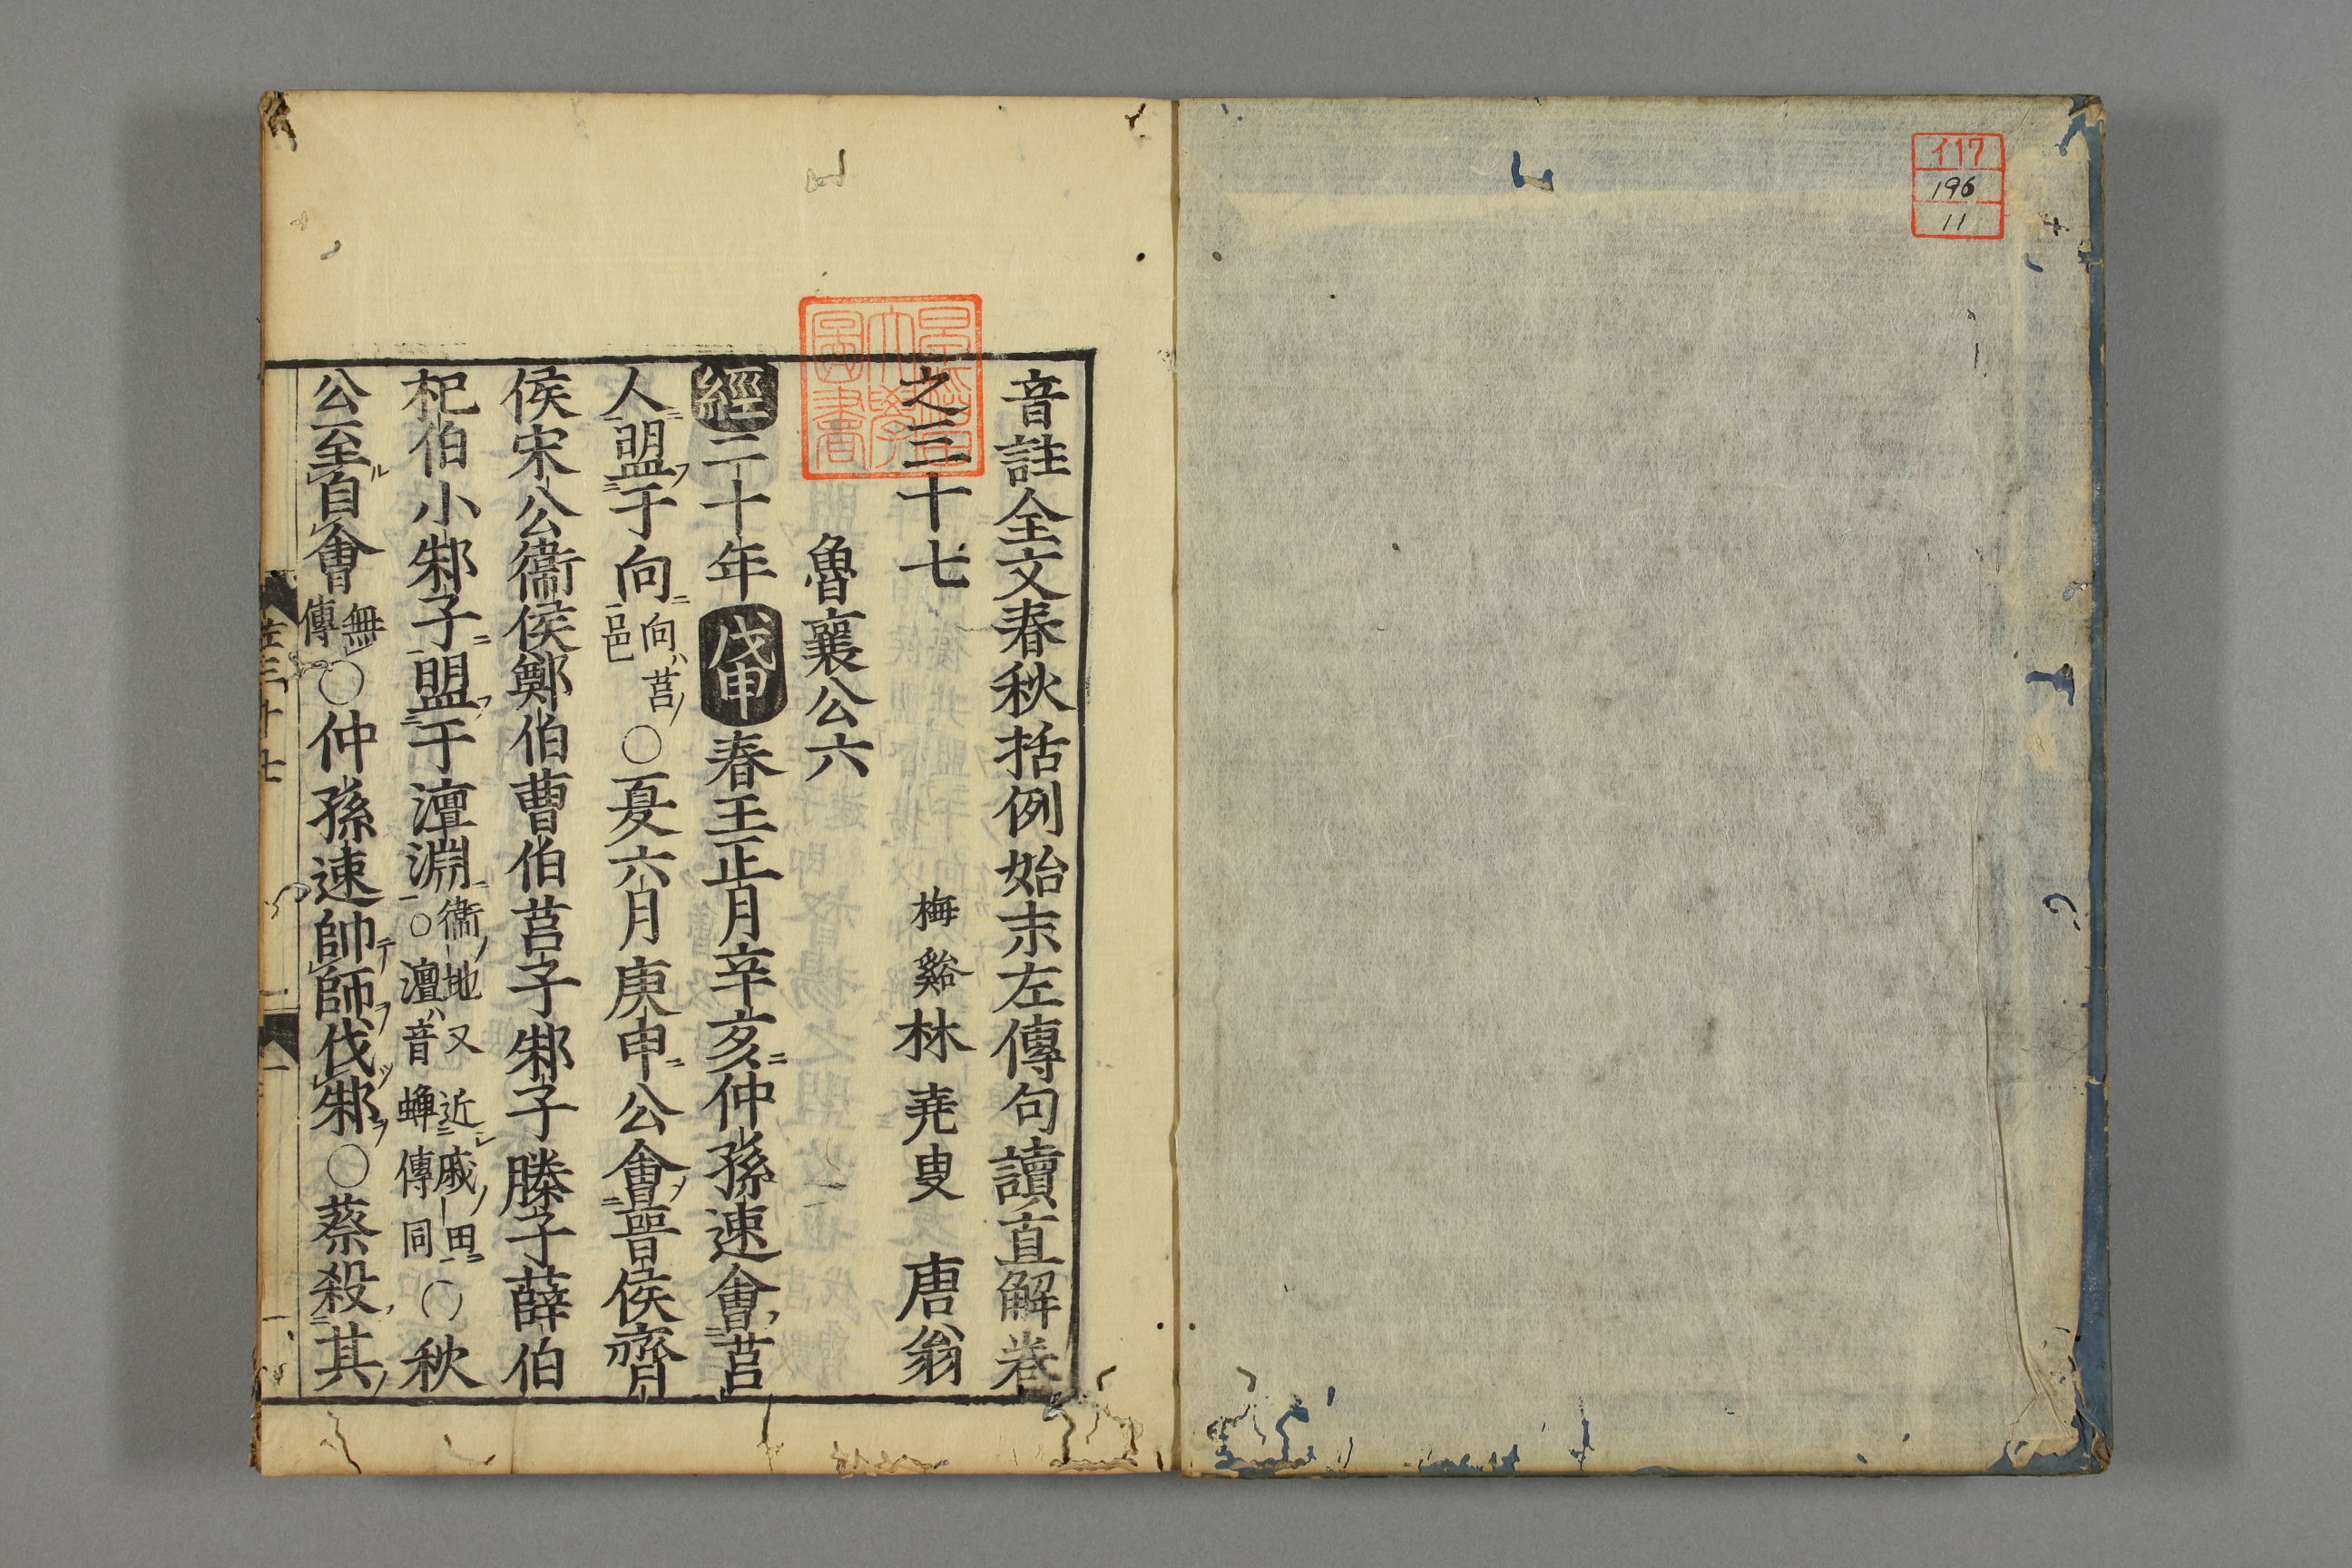 イ17
196
11
音註全文春秋括例始末左傳句讀直解卷
之三十七 梅谿林堯叟 唐翁
魯襄公六
經二十年戊申春王正月辛亥仲孫速會莒
人盟于向向莒邑○夏六月庚申公會晉侯齊
侯宋公衞侯鄭伯曹伯莒子邾子滕子薛伯
杞伯小邾子盟于澶淵衞地又近戚田○澶音蟬傳同○秋
公至自會無傳○仲孫速帥師伐邾○蔡殺其
左三十七